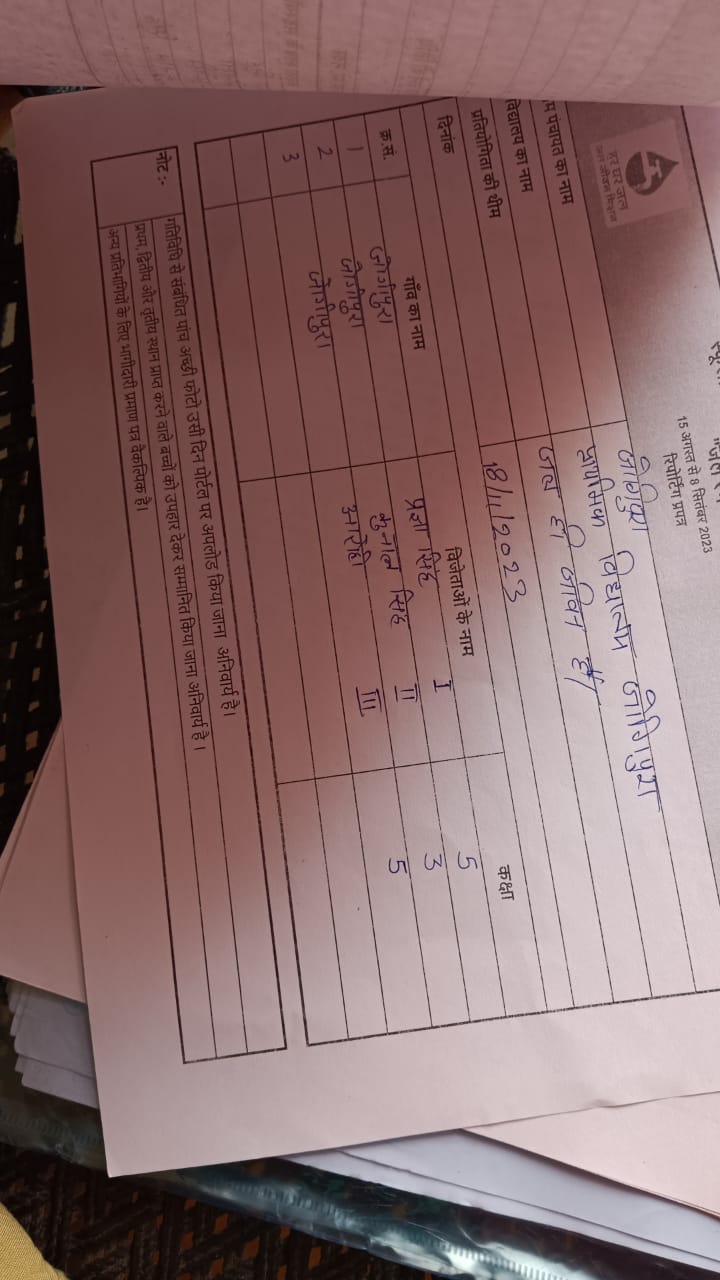 हर घर जल
जल जीवन मिशन
15 अगस्त से 8 सितंबर 2023
रिपोर्टिंग प्रपत्र
पंचायत का नाम जोगिपुरा
विद्यालय का नाम प्राथमिक विद्यालय जोगिपुरा
प्रतियोगिता की थीम जल ही जीवन है
दिनांक 18/11/2023
क्र.सं. गाँव का नाम विजेताओं के नाम कक्षा
1 जोगीपुरा सिंह I 5
2 जोगीपुरा कुनाल सिंह II 3
3 जोगीपुरा आरोही III 5
नोट :- गतिविधि से संबंधित पांच अच्छी फोटो उसी दिन पोर्टल पर अपलोड किया जाना अनिवार्य है।
प्रथम, द्वितीय और तृतीय स्थान प्राप्त करने वाले बच्चों को उपहार देकर सम्मानित किया जाना अनिवार्य है।
अन्य प्रतिभागियों के लिए भागीदारी प्रमाण पत्र वैकल्पिक है।